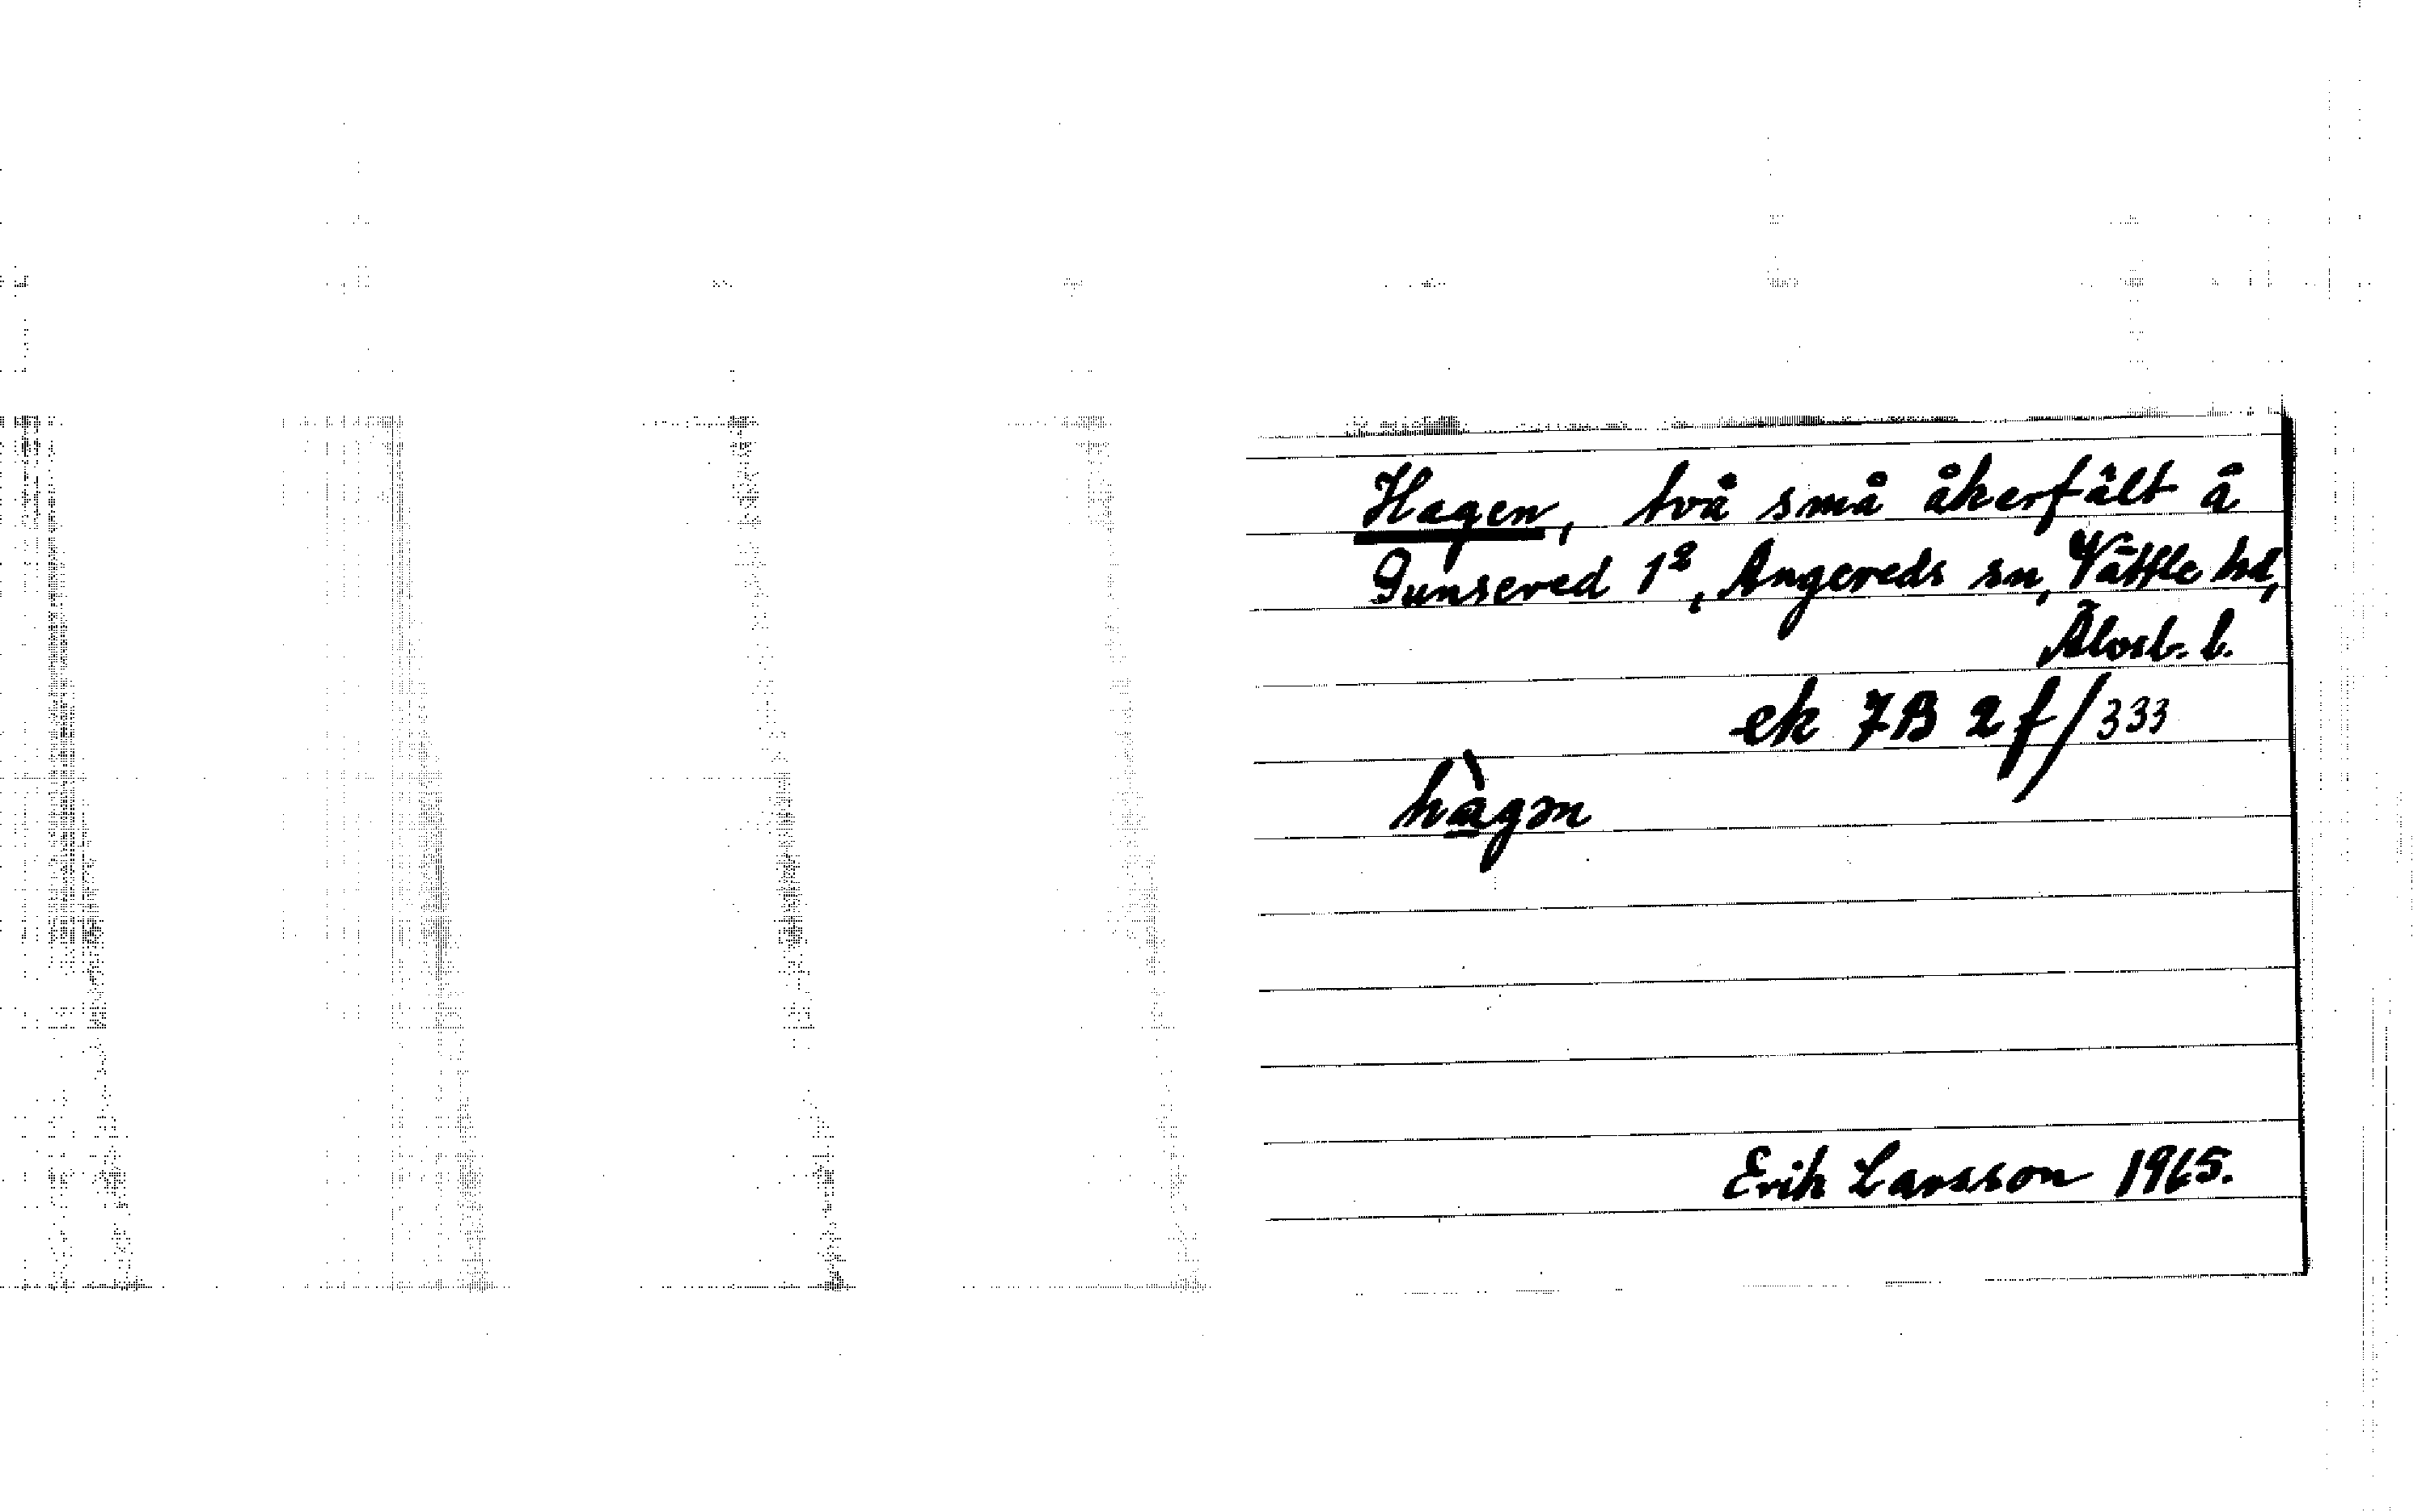 Hagen, två små åkerfält å
Gunsered 1², Angereds sn, Vättle hd,
Älvsb. l.
ek 7B 2f/333
hàgən
Erik Larsson 1965.